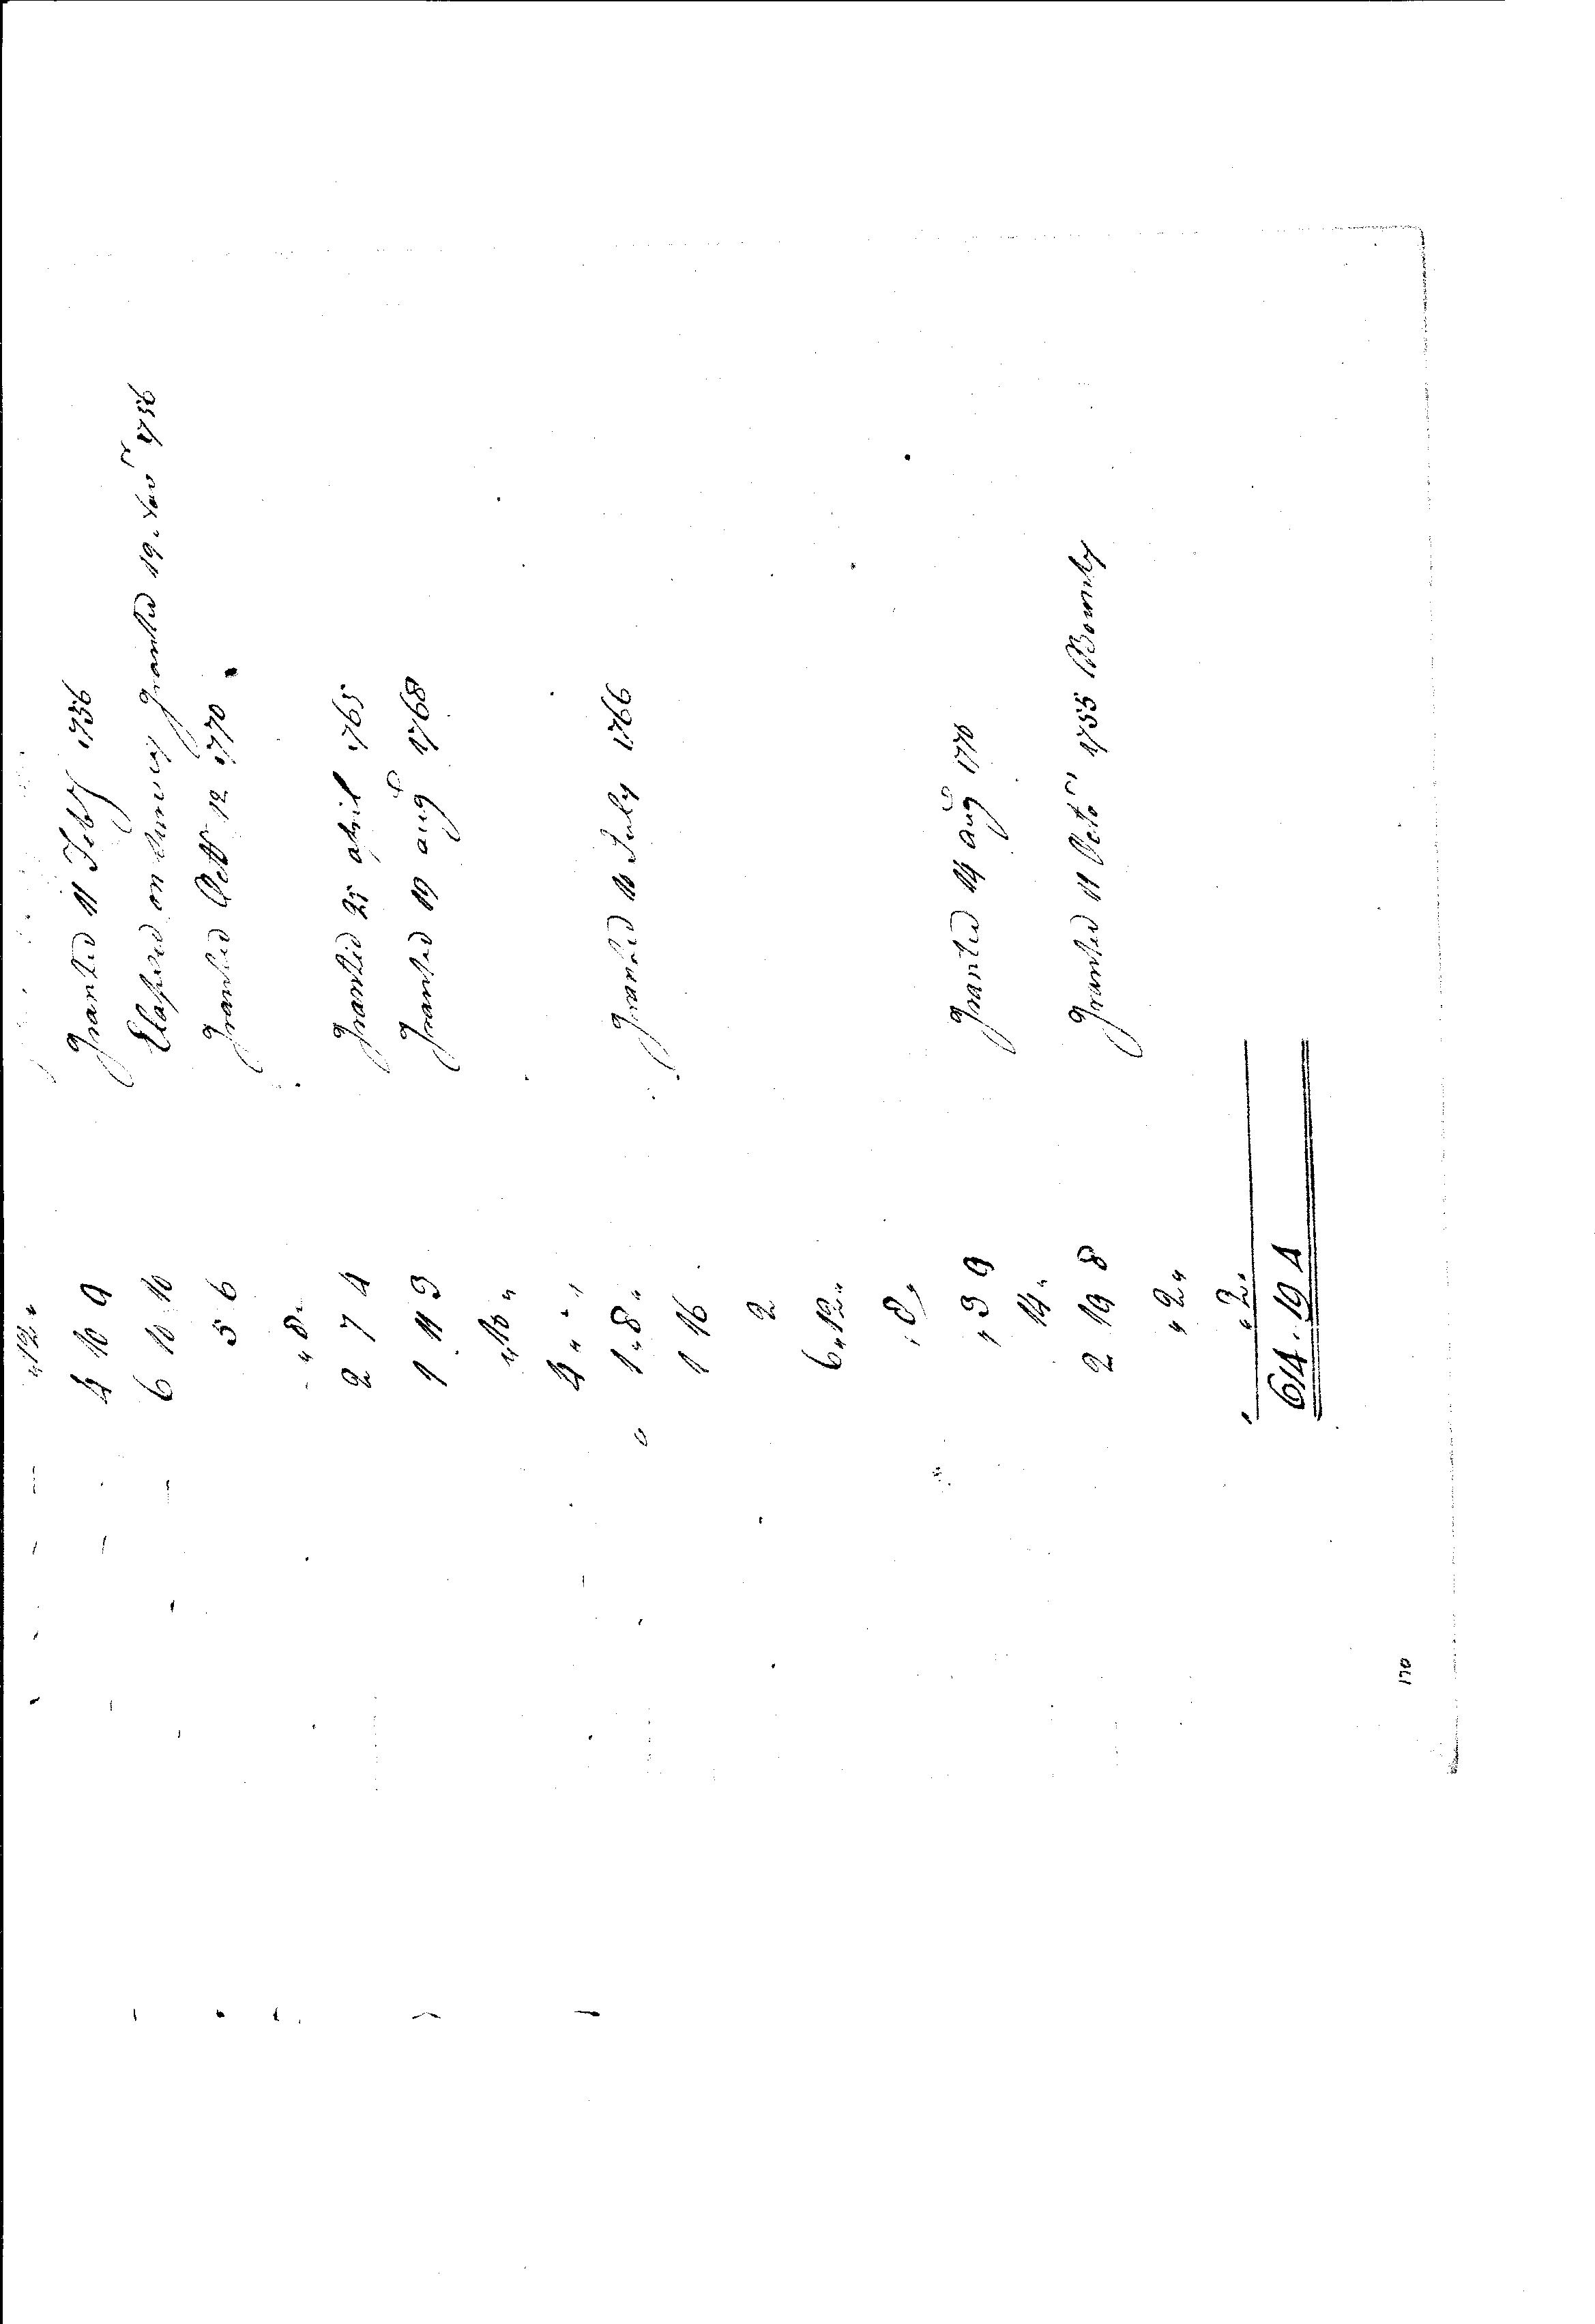 "12"
4 10 9 Granted 11 Feby 1756
6 10 10 Elapsed on Survey Granted 19 1756
5 6 Granted Octr 12 1770
"8"
2 7 4 Granted 25 april 1765
1 11 3 Granted 19 augt 1768
"10"
4 " "
1"8" Granted 10 July 1766
1 16
2
6"12"
"8"
"3 9 Granted 14 augt 1770
14"
2 19 8 Granted 11 Octor 1755
"2"
"2"
614.19 4
170